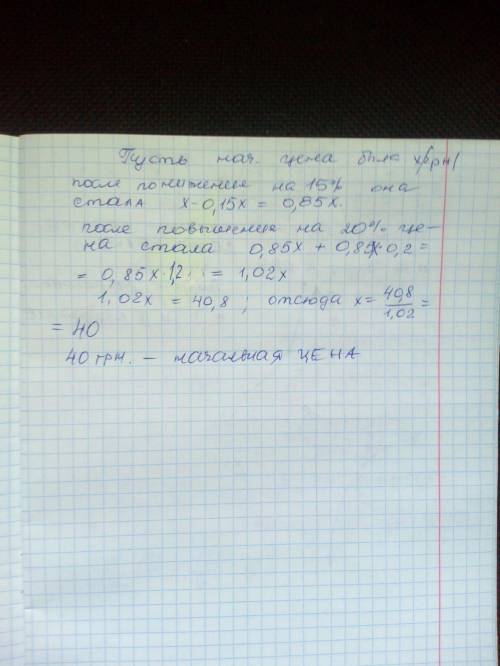 Пусть нач. цена была х(грн)
после понижения на 15% она
стала х-0,15х = 0,85х.
после повышения на 20% це-
на стала 0,85х + 0,85х·0,2=
= 0,85х·1,2 = 1,02х
1,02х = 40,8 ; отсюда х= 40,8/1,02 =
= 40
40 грн. – начальная ЦЕНА